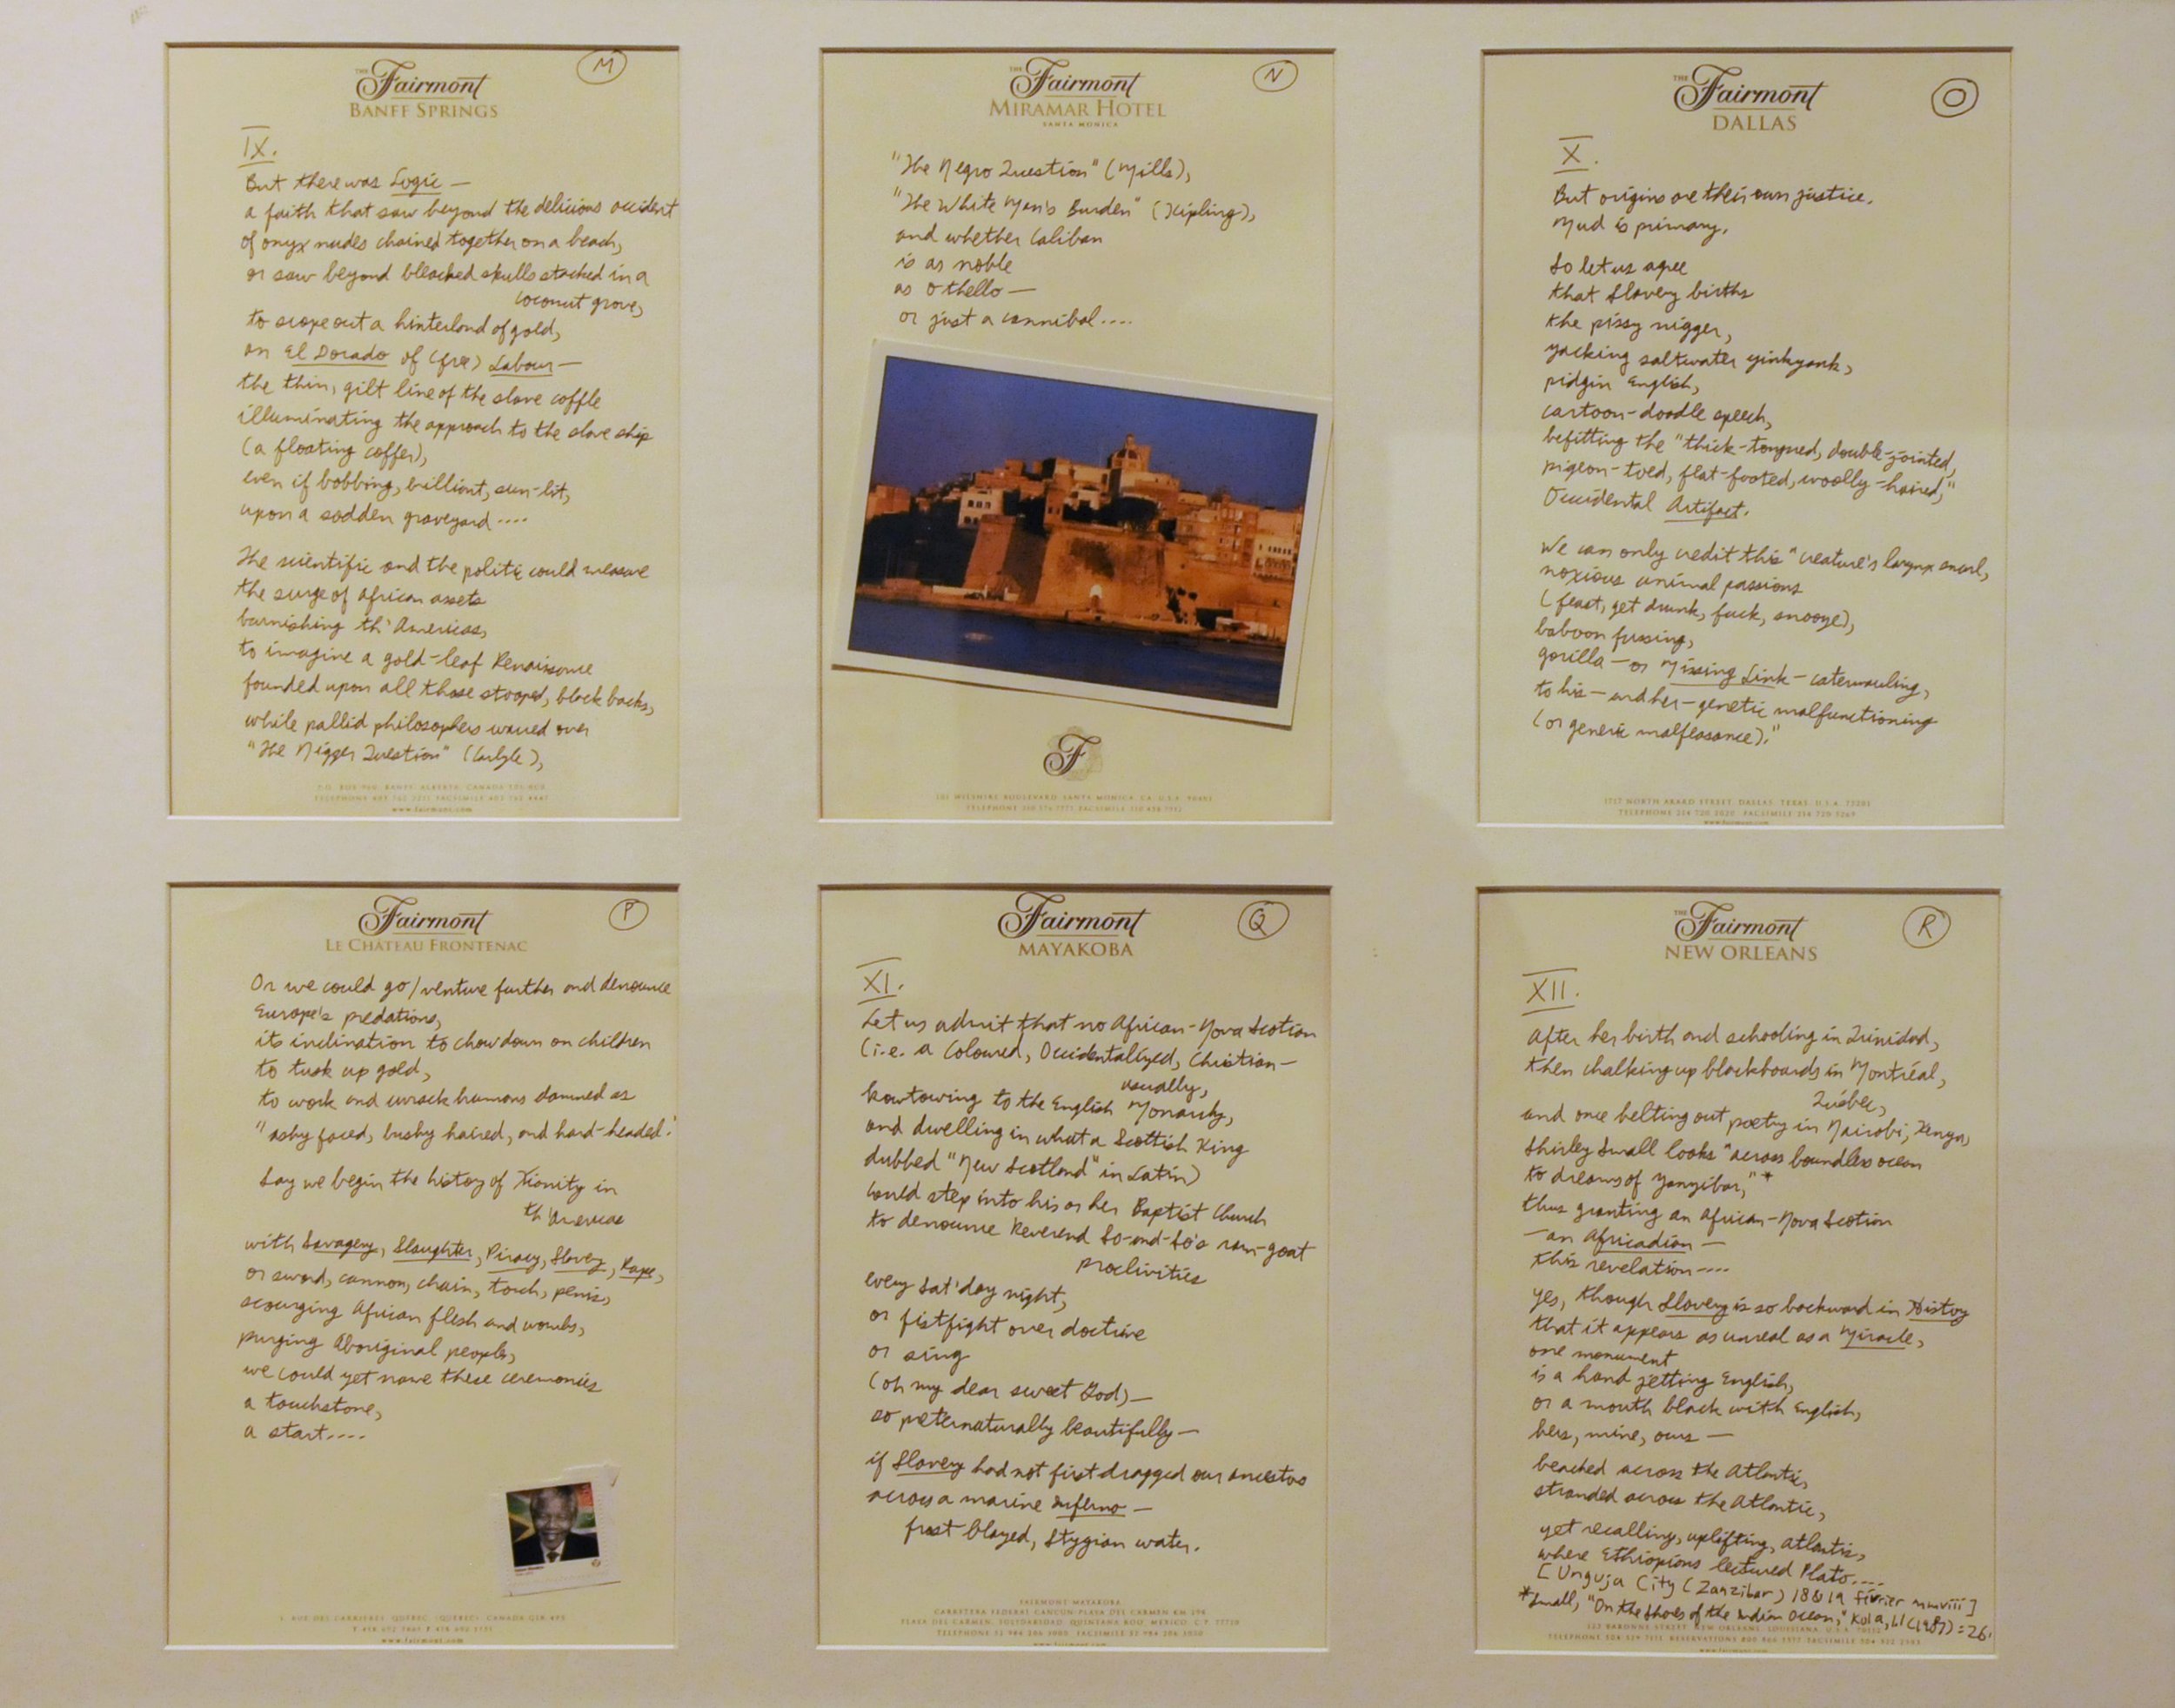 THE Fairmont
BANFF SPRINGS
M
IX.
But there was Logic —
a faith that saw beyond the delicious accident
of onyx nudes chained together on a beach,
or saw beyond bleached skulls stacked in a
coconut grove,
to scope out a hinterland of gold,
an El Dorado of (free) Labour —
the thin, gilt line of the slave coffle
illuminating the approach to the slave ship
(a floating coffer),
even if bobbing, brilliant, sun-lit,
upon a sodden graveyard....
The scientific and the politic could measure
the surge of African assets
burnishing th' Americas,
to imagine a gold-leaf Renaissance
founded upon all those stooped, black backs,
while pallid philosophers warred over
"The Nigger Question" (Carlyle),
P.O. BOX 960, BANFF, ALBERTA, CANADA
TELEPHONE 403 762 2211 FACSIMILE 403 762
www.fairmont.com
THE Fairmont
MIRAMAR HOTEL
SANTA MONICA
N
"The Negro Question" (Mills),
"The White Man's Burden" (Kipling),
and whether Caliban
is as noble
as Othello —
or just a cannibal....
F
101 WILSHIRE BOULEVARD, SANTA MONICA, CA, U.S.A. 90401
TELEPHONE 310 576 7777 FACSIMILE 310 458 7912
THE Fairmont
DALLAS
O
X.
But origins are their own justice.
Mud is primary.
So let us agree
that Slavery births
the pissy nigger,
yacking saltwater yinkyank,
pidgin English,
cartoon-doodle speech,
befitting the "thick-tongued, double-jointed,
pigeon-toed, flat-footed, woolly-haired,"
Occidental Artifact.
We can only credit this "creature's larynx snarl,
noxious animal passions
(feast, get drunk, fuck, snooze),
baboon fussing,
gorilla — or Missing Link — caterwauling,
to his — and her — genetic malfunctioning
(or generic malfeasance)."
1717 NORTH AKARD STREET, DALLAS, TEXAS, U.S.A. 75201
TELEPHONE 214 720 2020 FACSIMILE 214 720 5269
www.fairmont.com
Fairmont
LE CHÂTEAU FRONTENAC
P
Or we could go/venture further and denounce
Europe's predations,
its inclination to chow down on children
to tusk up gold,
to work and wrack humans damned as
"ashy faced, bushy haired, and hard-headed."
Say we begin the history of Xianity in
th'Americas
with Savagery, Slaughter, Piracy, Slavery, Rape,
or sword, cannon, chain, torch, penis,
scourging African flesh and wombs,
purging Aboriginal peoples,
we could yet name these ceremonies
a touchstone,
a start....
1, RUE DES CARRIÈRES, QUÉBEC (QUÉBEC) CANADA G1R 4P5
T 418 692 3861 F 418 692 1751
www.fairmont.com
Fairmont
MAYAKOBA
Q
XI.
Let us admit that no African-Nova Scotian
(i.e. a Coloured, Occidentalized, Christian —
usually,
kowtowing to the English Monarchy,
and dwelling in what a Scottish King
dubbed "New Scotland" in Latin)
could step into his or her Baptist Church
to denounce Reverend So-and-So's ram-goat
proclivities
every Sat'day night,
or fistfight over doctrine
or sing
(oh my dear sweet God) —
so preternaturally beautifully —
if Slavery had not first dragged our ancestors
across a marine Inferno —
frost blazed, Stygian water.
FAIRMONT MAYAKOBA
CARRETERA FEDERAL CANCÚN-PLAYA DEL CARMEN KM 298
PLAYA DEL CARMEN, SOLIDARIDAD, QUINTANA ROO, MEXICO, C.P. 77710
TELEPHONE 52 984 206 3000 FACSIMILE 52 984 206 3030
THE Fairmont
NEW ORLEANS
R
XII.
After her birth and schooling in Trinidad,
then chalking up blackboards in Montréal,
Québec,
and once belting out poetry in Nairobi, Kenya,
Shirley Small looks "across boundless ocean
to dreams of Zanzibar,"*
thus granting an African-Nova Scotian
— an Africadian —
this revelation....
Yes, though Slavery is so backward in History
that it appears as unreal as a Miracle,
one monument
is a hand jetting English,
or a mouth black with English,
hers, mine, ours —
beached across the Atlantic,
stranded across the Atlantic,
yet recalling, uplifting, Atlantis,
where Ethiopians lectured Plato....
[Unguja City (Zanzibar) 18 & 19 février mmviii]
*Small, "On the Shores of the Indian Ocean," Kola, 1.1 (1987): 26.
123 BARONNE STREET, NEW ORLEANS, LOUISIANA, U.S.A. 70112
TELEPHONE 504 529 7111 RESERVATIONS 800